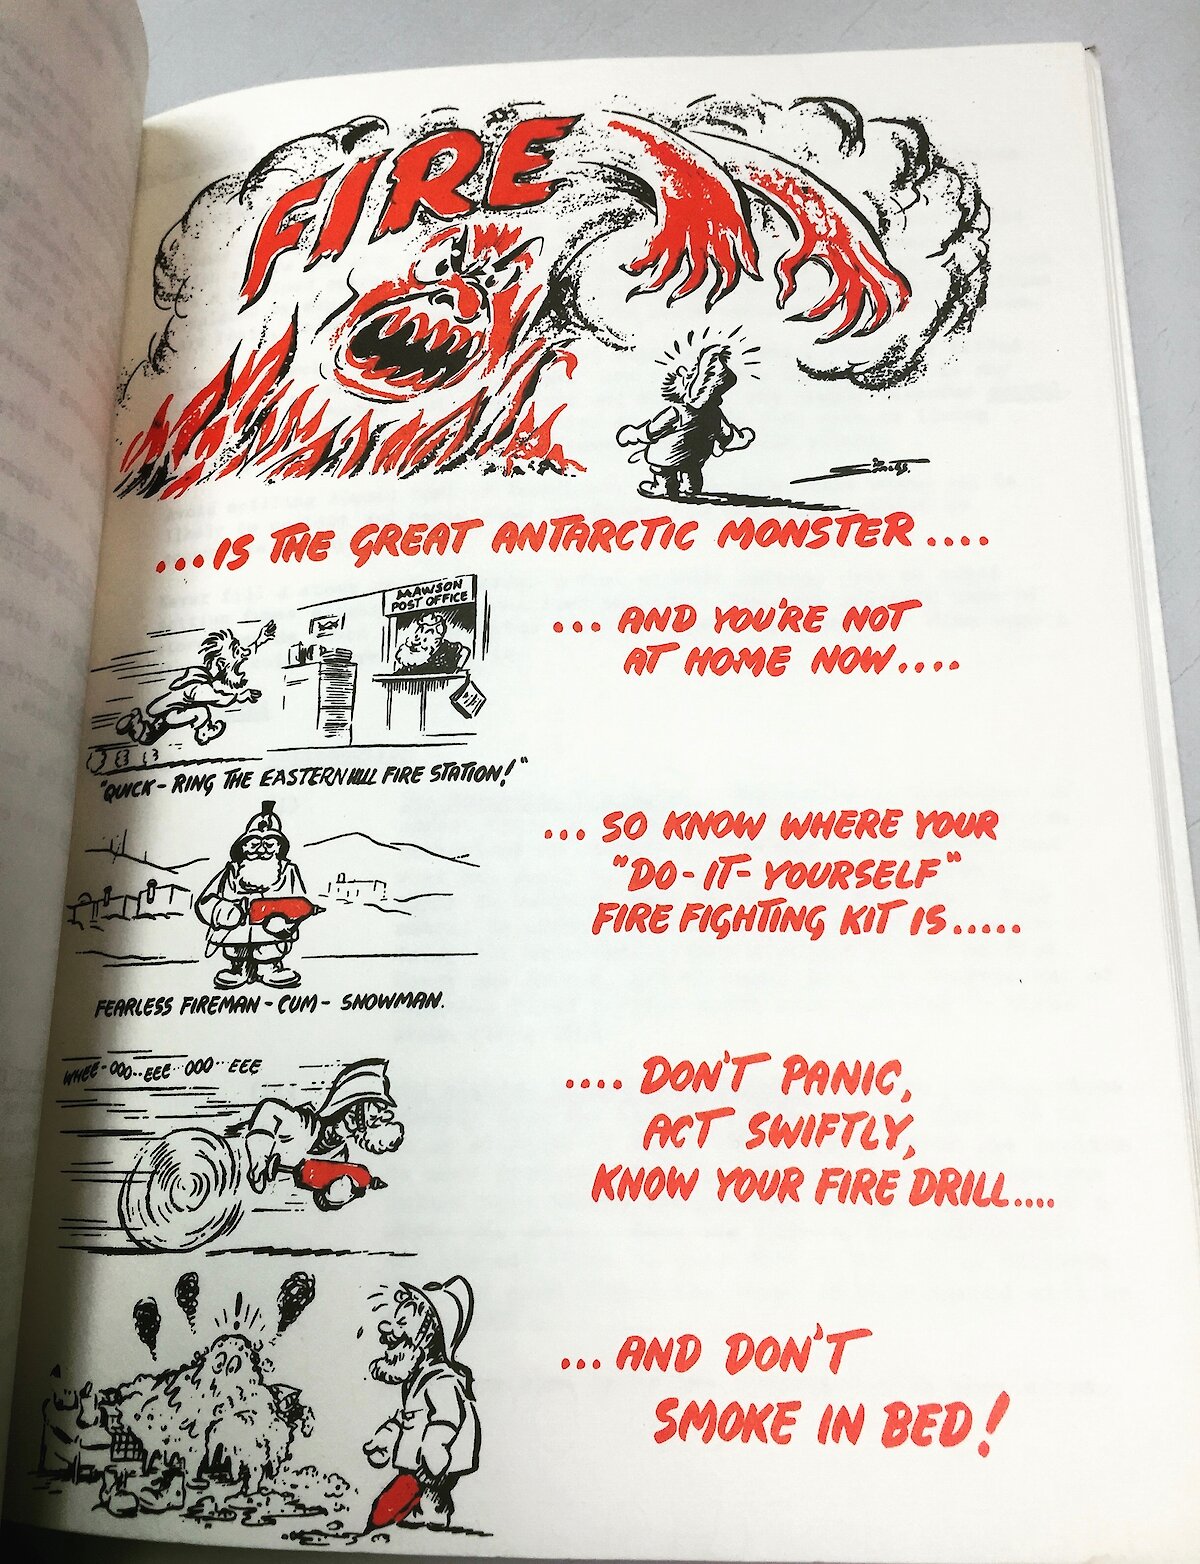 FIRE
...IS THE GREAT ANTARCTIC MONSTER....
MAWSON
POST OFFICE
... AND YOU'RE NOT
AT HOME NOW....
"QUICK - RING THE EASTERN HILL FIRE STATION!"
... SO KNOW WHERE YOUR
"DO-IT-YOURSELF"
FIRE FIGHTING KIT IS.....
FEARLESS FIREMAN - CUM - SNOWMAN.
WHEE-OOO..EEE..OOO..EEE
.... DON'T PANIC,
ACT SWIFTLY,
KNOW YOUR FIRE DRILL....
... AND DON'T
SMOKE IN BED!